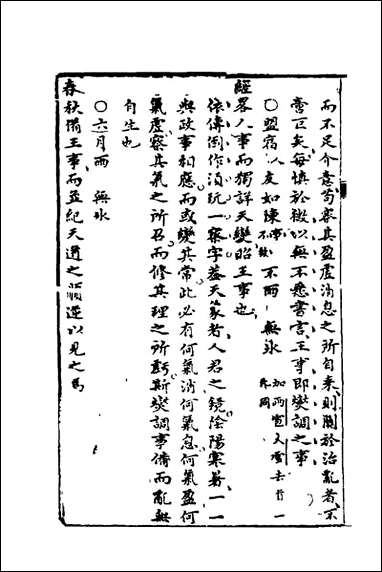 而不足介意苟察其盈虛消息之所自來則關於治亂者不
啻巨矣每慎於微以無不悉書言王事即燮調之事
○盟宿以友如陳事不繫不雨 無氷
經畧人事而獨詳天變昭王事也
依傳倒作須玩一察字蓋天象者人君之鏡陰陽寒暑一一
與政事相應而或變其常此必有何氣消何氣息何氣盈何
氣虛察其氣之所召而修其理之所虧斯燮調事備而亂無
自生也
○六月雨 無氷
春秋備王事而並紀天道之順逆以見之焉